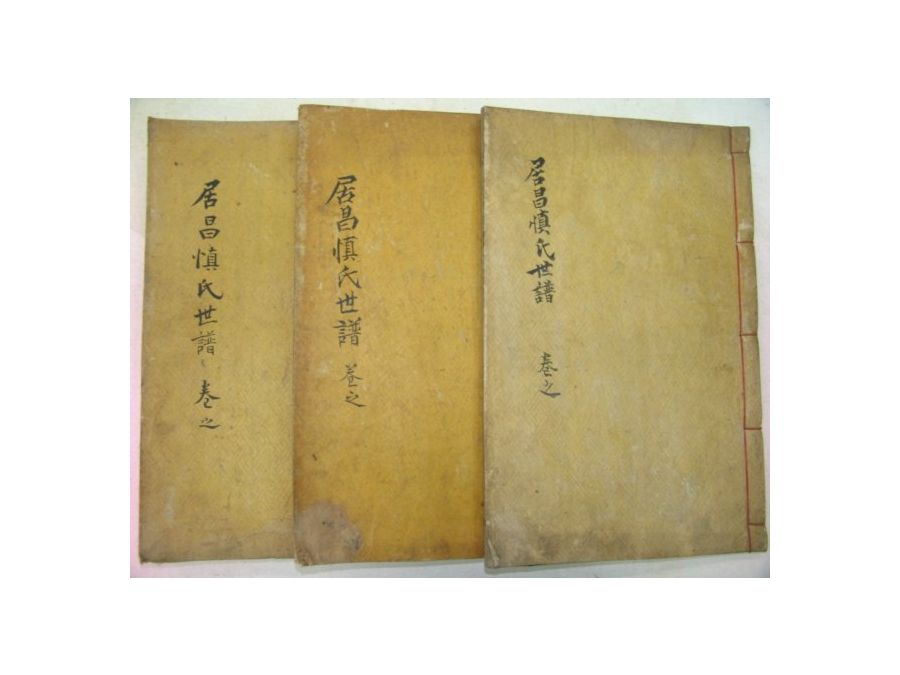 居昌愼氏世譜 卷之
居昌愼氏世譜 卷之
居昌愼氏世譜 卷之